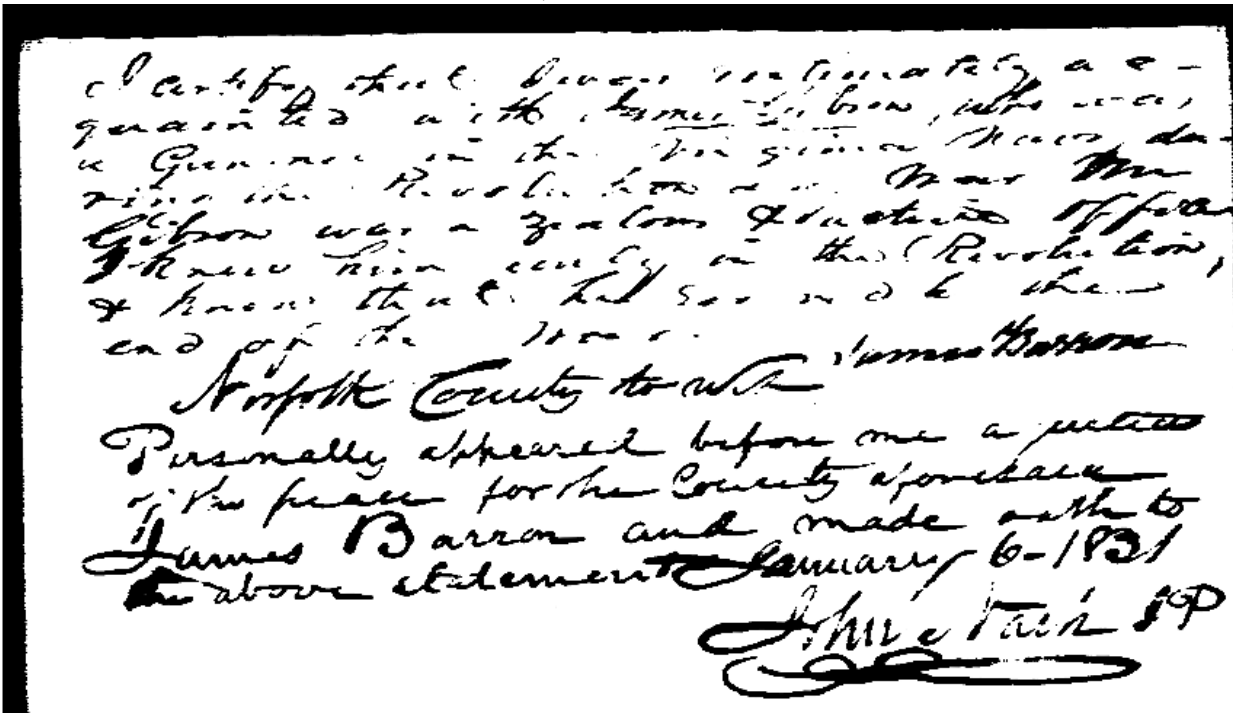 I certify that I was intimately ac-
quainted with James Gibson, who was
a Gunner in the Virginia Navy, du-
ring the Revolutionary War Mr
Gibson was a zealous & active officer
I knew him early in the Revolution,
& know that he served to the
end of the War.
James Barron
Norfolk County to wit
Personally appeared before me a justice
of the peace for the County aforesaid
James Barron and made oath to
the above statement January 6-1831
John JP